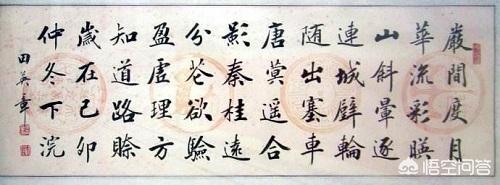 巖間度月
華流彩暎
山斜暈逐
連城璧輪
随出塞車
唐蓂遥合
影秦桂遠
分花欲驗
盈虛理方
知道路賒
歲在己卯
仲冬下浣
田英章
悟空问答